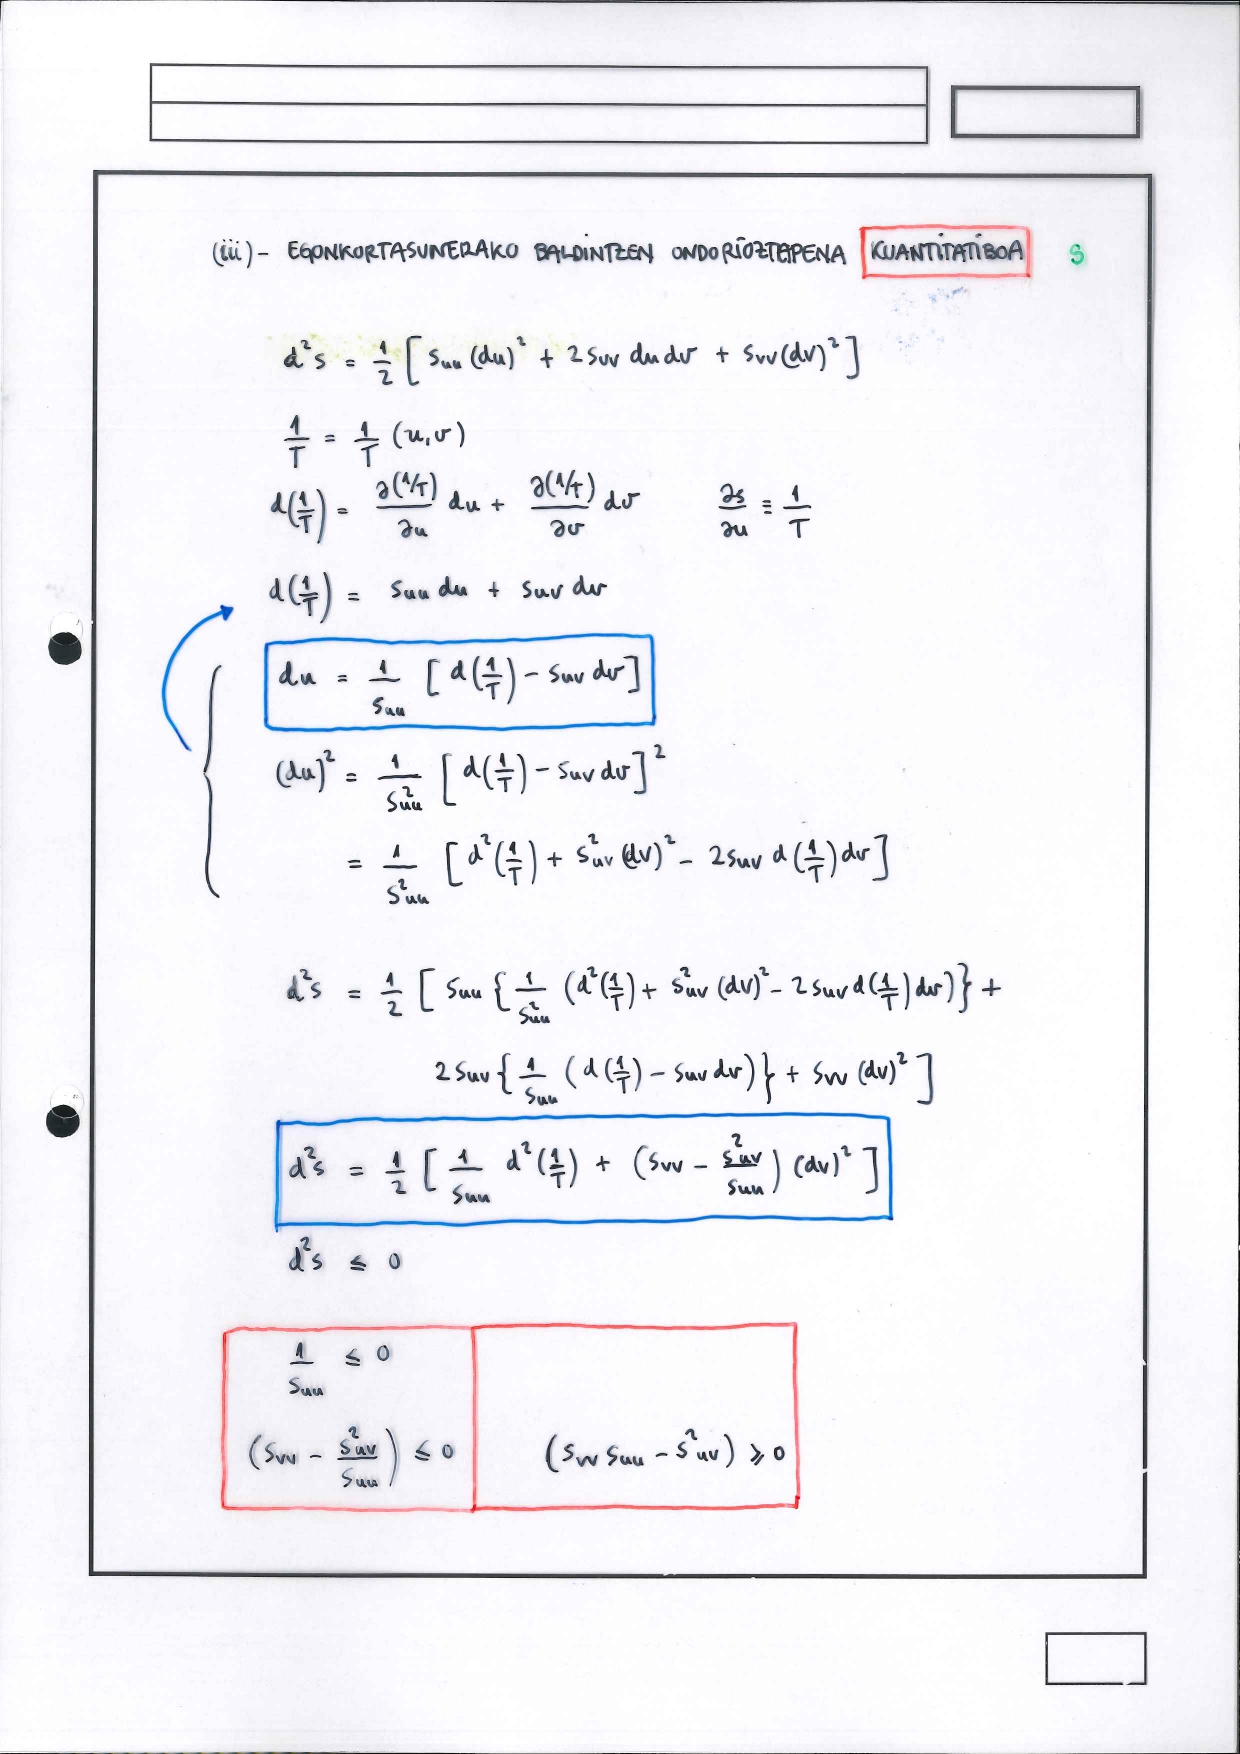 (iii)- EGONKORTASUNERAKO BALDINTZEN ONDORIOZTAPENA KUANTITATIBOA S
d²s = 1/2 [ s_uu (du)² + 2 s_uv du dv + s_vv (dv)² ]
1/T = 1/T (u,v)
d(1/T) = ∂(1/T)/∂u du + ∂(1/T)/∂v dv ∂s/∂u ≡ 1/T
d(1/T) = s_uu du + s_uv dv
du = 1/s_uu [ d(1/T) - s_uv dv ]
(du)² = 1/s²_uu [ d(1/T) - s_uv dv ]²
= 1/s²_uu [ d²(1/T) + s²_uv (dv)² - 2 s_uv d(1/T) dv ]
d²s = 1/2 [ s_uu { 1/s²_uu (d²(1/T) + s²_uv (dv)² - 2 s_uv d(1/T) dv) } +
2 s_uv { 1/s_uu ( d(1/T) - s_uv dv ) } + s_vv (dv)² ]
d²s = 1/2 [ 1/s_uu d²(1/T) + ( s_vv - s²_uv/s_uu ) (dv)² ]
d²s ≤ 0
1/s_uu ≤ 0
( s_vv - s²_uv/s_uu ) ≤ 0 ( s_vv s_uu - s²_uv ) ≥ 0